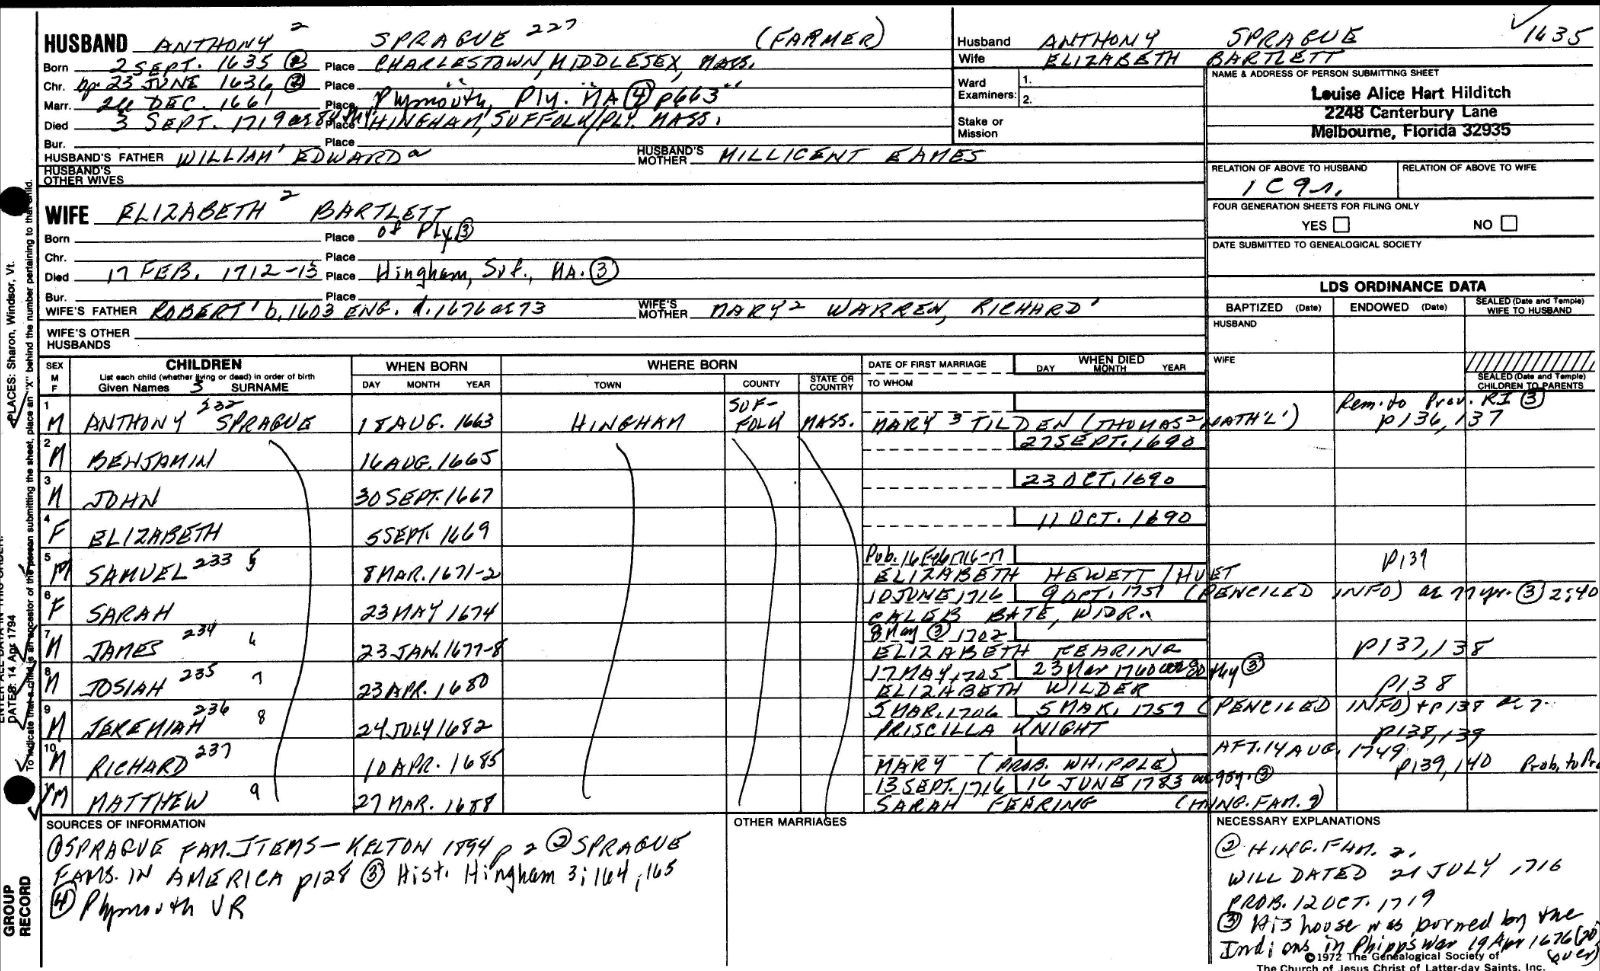 HUSBAND ANTHONY 2 SPRAGUE 227 (FARMER)
Born 2 SEPT. 1635 ② Place CHARLESTOWN, MIDDLESEX, MASS.
Chr. ap 23 JUNE 1636 ② Place " "
Marr. 26 DEC. 1661 Place Plymouth, Ply. MA ④ p663
Died 3 SEPT. 1719 Place HINGHAM, SUFFOLK/PLY. MASS.
Bur. Place
HUSBAND'S FATHER WILLIAM' EDWARD HUSBAND'S MOTHER MILLICENT EAMES
HUSBAND'S OTHER WIVES
WIFE ELIZABETH 2 BARTLETT
Born Place of Ply ③
Chr. Place
Died 17 FEB. 1712-13 Place Hingham, Suf., MA. ③
Bur. Place
WIFE'S FATHER ROBERT' b. 1603 ENG. d. 1676 æ 73 WIFE'S MOTHER MARY 2 WARREN, RICHARD'
WIFE'S OTHER HUSBANDS
Husband ANTHONY SPRAGUE ✓ 1635
Wife ELIZABETH BARTLETT
Ward Examiners: 1. 2.
Stake or Mission
NAME & ADDRESS OF PERSON SUBMITTING SHEET
Louise Alice Hart Hilditch
2248 Canterbury Lane
Melbourne, Florida 32935
RELATION OF ABOVE TO HUSBAND RELATION OF ABOVE TO WIFE
1 C 9 r.
FOUR GENERATION SHEETS FOR FILING ONLY
YES NO
DATE SUBMITTED TO GENEALOGICAL SOCIETY
LDS ORDINANCE DATA
BAPTIZED (Date) ENDOWED (Date) SEALED (Date and Temple) WIFE TO HUSBAND
HUSBAND
WIFE
SEALED (Date and Temple) CHILDREN TO PARENTS
SEX M F CHILDREN WHEN BORN WHERE BORN DATE OF FIRST MARRIAGE WHEN DIED
List each child (whether living or dead) in order of birth
Given Names 3 SURNAME DAY MONTH YEAR TOWN COUNTY STATE OR COUNTRY TO WHOM DAY MONTH YEAR
1 M ANTHONY SPRAGUE 232 1 8 AUG. 1663 HINGHAM SUFFOLK MASS. MARY 3 TILDEN (THOMAS 2 NATH'L') Rem. to Prov. RI ③ p136, 137
2 M BENJAMIN 16 AUG. 1665 27 SEPT. 1690
3 M JOHN 30 SEPT. 1667 23 OCT. 1690
4 F ELIZABETH 5 SEPT. 1669 11 OCT. 1690
5 M SAMUEL 233 5 8 MAR. 1671-2 Pub. 16 Feb 1716-17 ELIZABETH HEWETT/HUET p139
6 F SARAH 23 MAY 1674 10 JUNE 1716 9 OCT. 1751 (PENCILED INFO) æ 77 yr. ③ 2:40 CALEB BATE, WIDR.
7 M JAMES 234 6 23 JAN. 1677-8 8 May ③ 1702 ELIZABETH FEARING p137, 138
8 M JOSIAH 235 7 23 APR. 1680 17 MAY, 1705 23 Mar 1760 ③ ELIZABETH WILDER p138
9 M JEREMIAH 236 8 24 JULY 1682 5 MAR. 1706 5 MAR. 1759 (PENCILED INFO) + p138 PRISCILLA KNIGHT p138, 139
10 M RICHARD 237 10 APR. 1685 AFT. 14 AUG. 1749 MARY (PROB. WHIPPLE) p139, 140 Prob. to Pr
M MATTHEW 9 27 MAR. 1688 13 SEPT. 1716 16 JUNE 1783 ③ SARAH FEARING (HING. FAM. 9)
SOURCES OF INFORMATION
①SPRAGUE FAM. ITEMS – KELTON 1894 p 2 ② SPRAGUE
FAMS. IN AMERICA p128 ③ Hist. Hingham 3:164, 165
④ Plymouth VR
OTHER MARRIAGES
NECESSARY EXPLANATIONS
② HING. FAM. 2.
WILL DATED 21 JULY, 1716
PROB. 12 OCT. 1719
③ His house was burned by the
Indians in Phipps War 19 Apr 1676
over)
©1972 The Genealogical Society of
The Church of Jesus Christ of Latter-day Saints, Inc.
PLACES: Sharon, Windsor, Vt.
DATES: 14 Apr 1794
To indicate that a child is an ancestor of the person submitting the sheet, place an "X" behind the number pertaining to that child.
GROUP RECORD